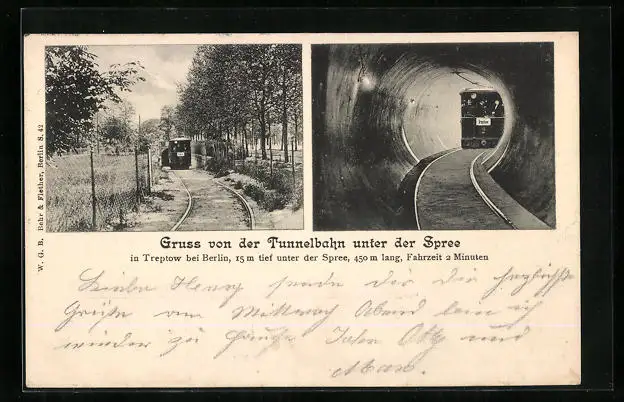 W. G. B. Behr & Fiether, Berlin S. 42
Treptow
2
Gruss von der Tunnelbahn unter der Spree
in Treptow bei Berlin, 15 m tief unter der Spree, 450 m lang, Fahrzeit 2 Minuten
sende dir die herzlichste
Grüße Mittwoch Abend bin ich
wieder zu Hause Otto und
Max.